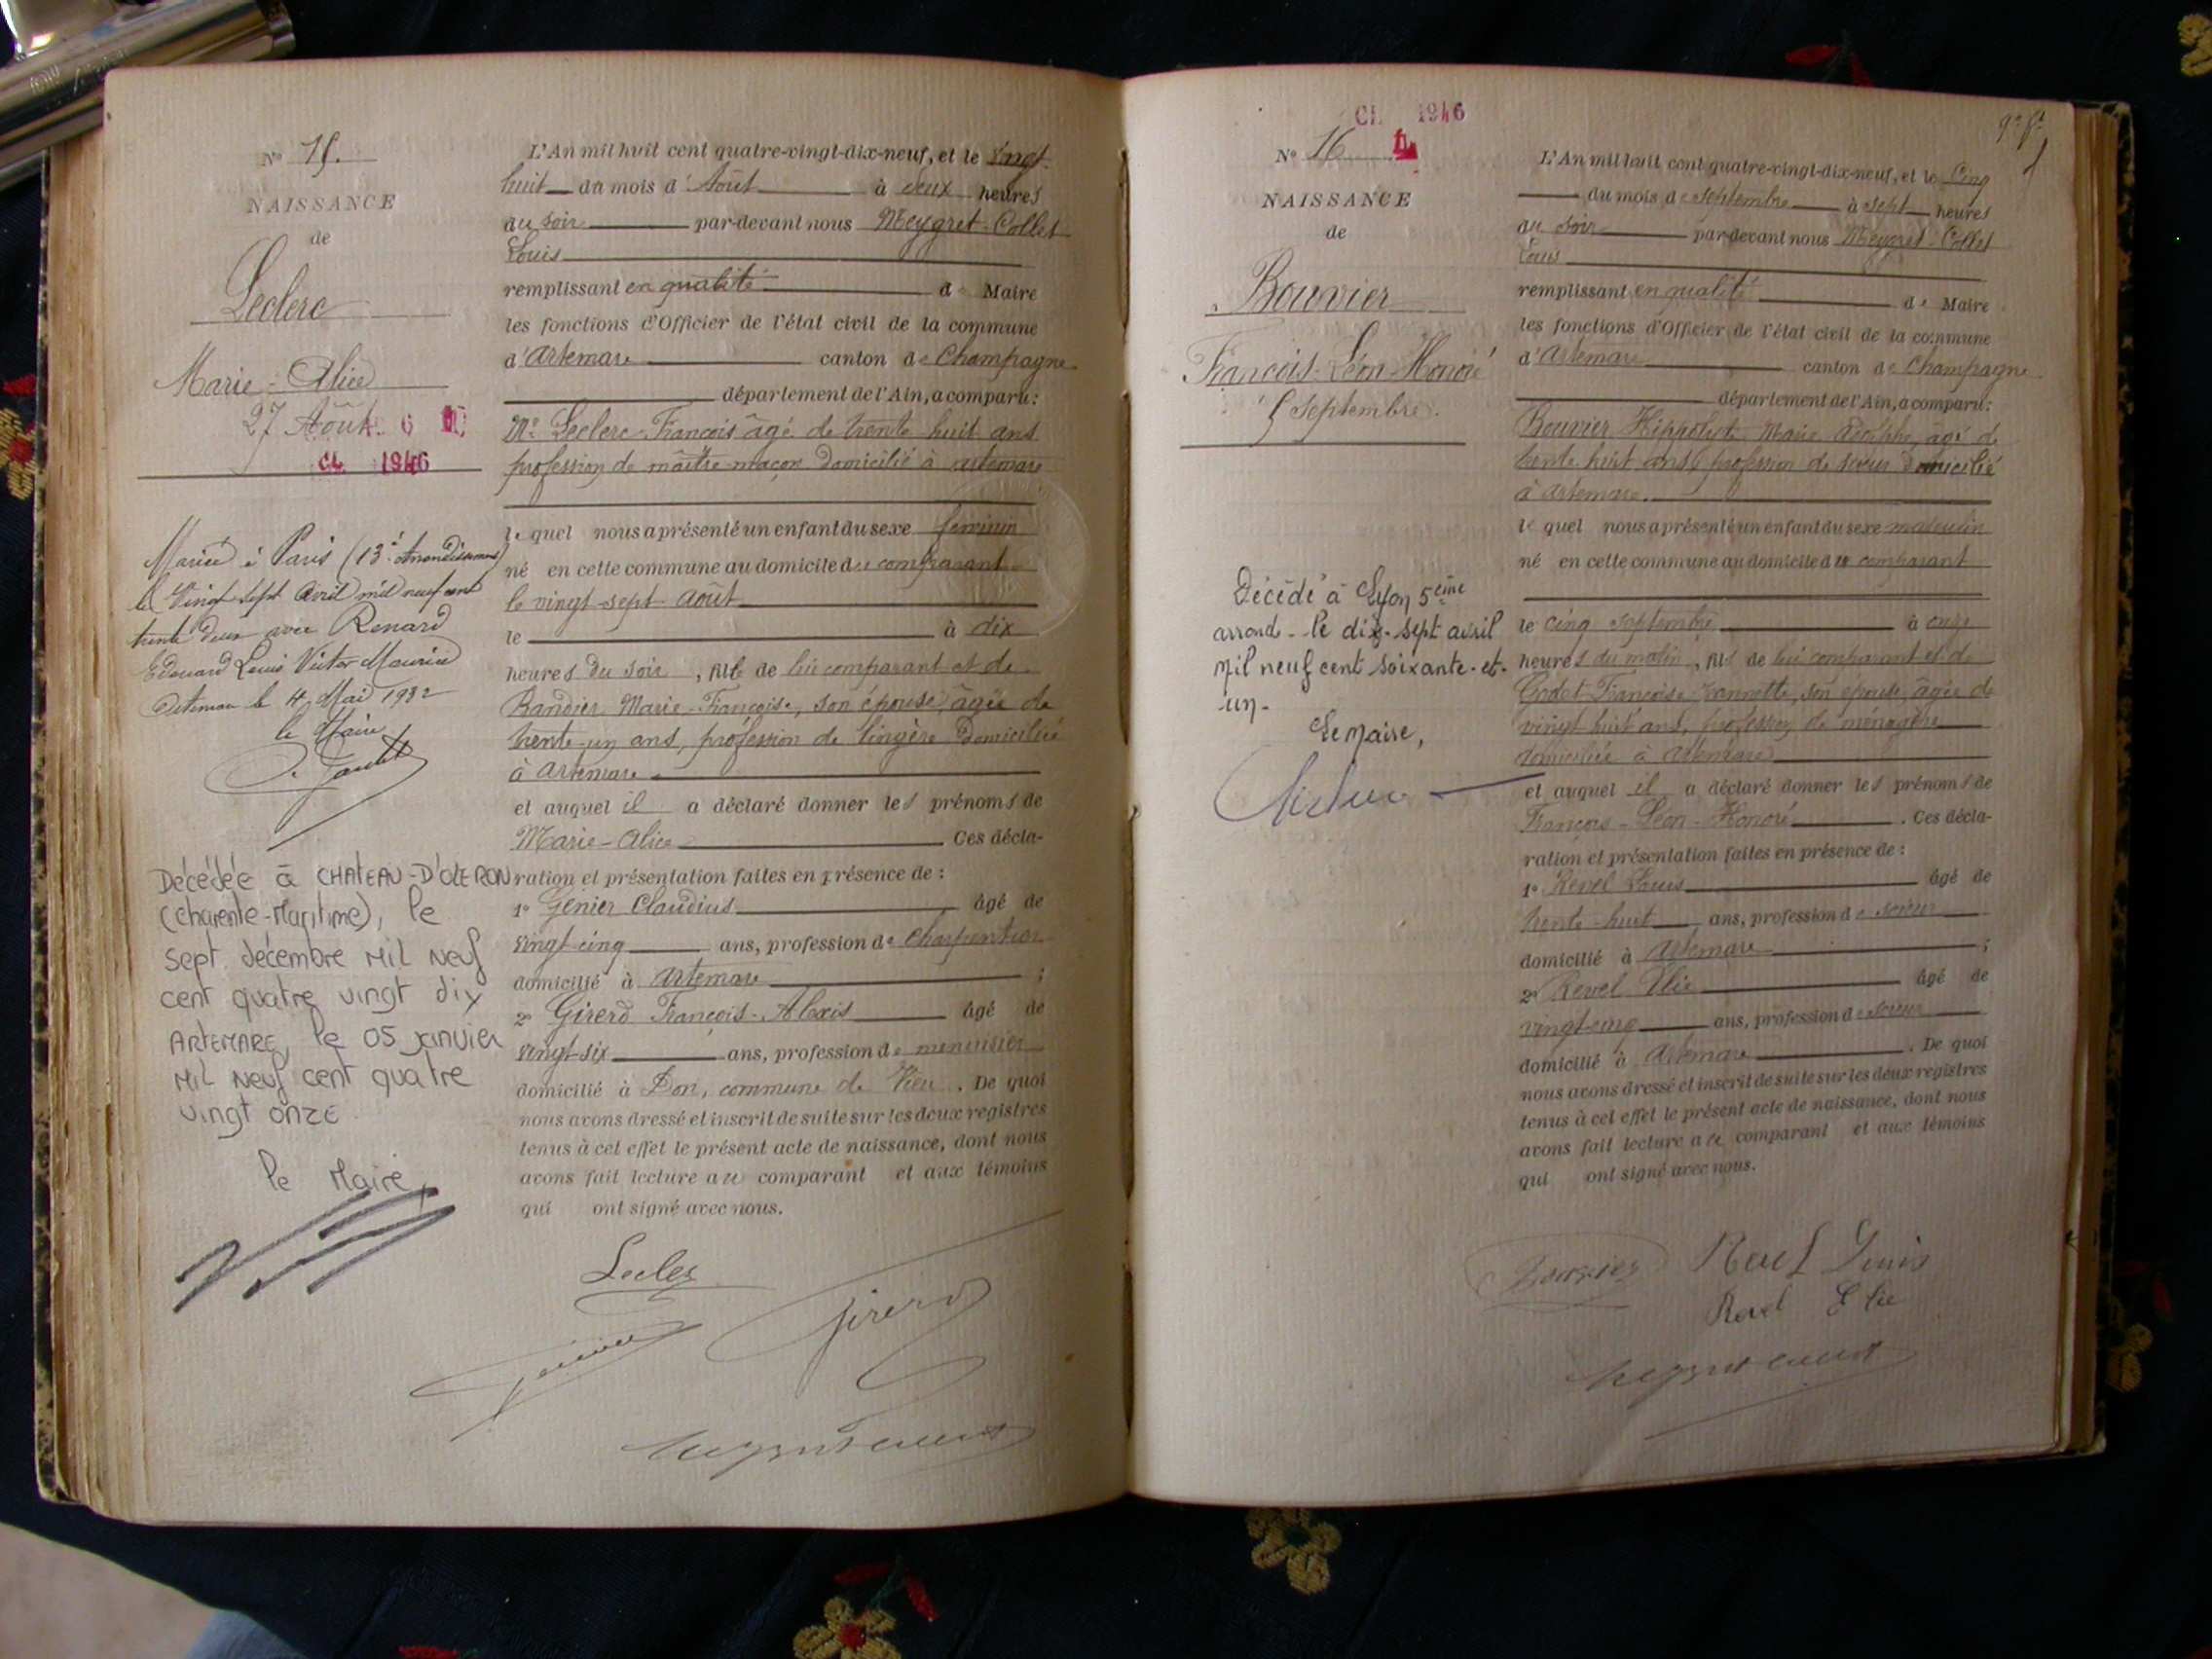 N° 15.
NAISSANCE
de
Leclerc
Marie-Alice
27 Août
CL 1946
Mariée à Paris (13e Arrondissement)
le Vingt sept Avril mil neuf cent
trente deux avec Renard
Edouard Louis Victor Maurice
Artemare le 4 Mai 1932
le Maire
Décédée à CHATEAU-D'OLERON
(Charente-Maritime), le
sept décembre Mil Neuf
cent quatre vingt dix
ARTEMARE, le 05 janvier
Mil Neuf cent quatre
vingt onze
le Maire,
L'An mil huit cent quatre-vingt-dix-neuf, et le vingt-
huit du mois d'Août à deux heures
du soir par-devant nous Meygret-Collet
Louis
remplissant en qualité de Maire
les fonctions d'Officier de l'état civil de la commune
d'Artemare canton de Champagne
département de l'Ain, a comparu:
Mr Leclerc François âgé de trente huit ans
profession de maître-maçon domicilié à artemare
le quel nous a présenté un enfant du sexe féminin
né en cette commune au domicile du comparant
le vingt-sept août
le à dix
heures du soir, fille de lui comparant et de
Bandier Marie-Françoise, son épouse, âgée de
trente-un ans, profession de lingère domiciliée
à Artemare
et auquel il a déclaré donner les prénoms de
Marie-Alice Ces décla-
ration et présentation faites en présence de :
1° Génier Claudius âgé de
vingt-cinq ans, profession de charpentier
domicilié à Artemare ;
2° Girerd François-Alexis âgé de
vingt-six ans, profession de menuisier
domicilié à Don, commune de Vieu. De quoi
nous avons dressé et inscrit de suite sur les deux registres
tenus à cet effet le présent acte de naissance, dont nous
avons fait lecture au comparant et aux témoins
qui ont signé avec nous.
Leclerc
Girerd
CL 1946
N° 16
NAISSANCE
de
Bouvier
François-Léon-Honoré
5 Septembre.
Décédé à Lyon 5ème
arrond- le dix-sept avril
mil neuf cent soixante-et-
un-
Le Maire,
L'An mil huit cent quatre-vingt-dix-neuf, et le Cinq
du mois de septembre à sept heures
du soir par-devant nous Meygret-Collet
Louis
remplissant en qualité de Maire
les fonctions d'Officier de l'état civil de la commune
d'Artemare canton de Champagne
département de l'Ain, a comparu:
Bouvier Hippolyte Marie Adolphe, âgé de
trente huit ans, profession de scieur domicilié
à Artemare.
le quel nous a présenté un enfant du sexe masculin
né en cette commune au domicile du comparant
le cinq septembre à onze
heures du matin, fils de lui comparant et de
Godet Françoise Jeannette, son épouse, âgée de
vingt huit ans, profession de ménagère
domiciliée à Artemare
et auquel il a déclaré donner les prénoms de
François-Léon-Honoré. Ces décla-
ration et présentation faites en présence de :
1° Revel Louis âgé de
trente-huit ans, profession de scieur
domicilié à Artemare ;
2° Revel Elie âgé de
vingt-cinq ans, profession de scieur
domicilié à Artemare. De quoi
nous avons dressé et inscrit de suite sur les deux registres
tenus à cet effet le présent acte de naissance, dont nous
avons fait lecture au comparant et aux témoins
qui ont signé avec nous.
Bouvier Revel Louis
Revel Elie